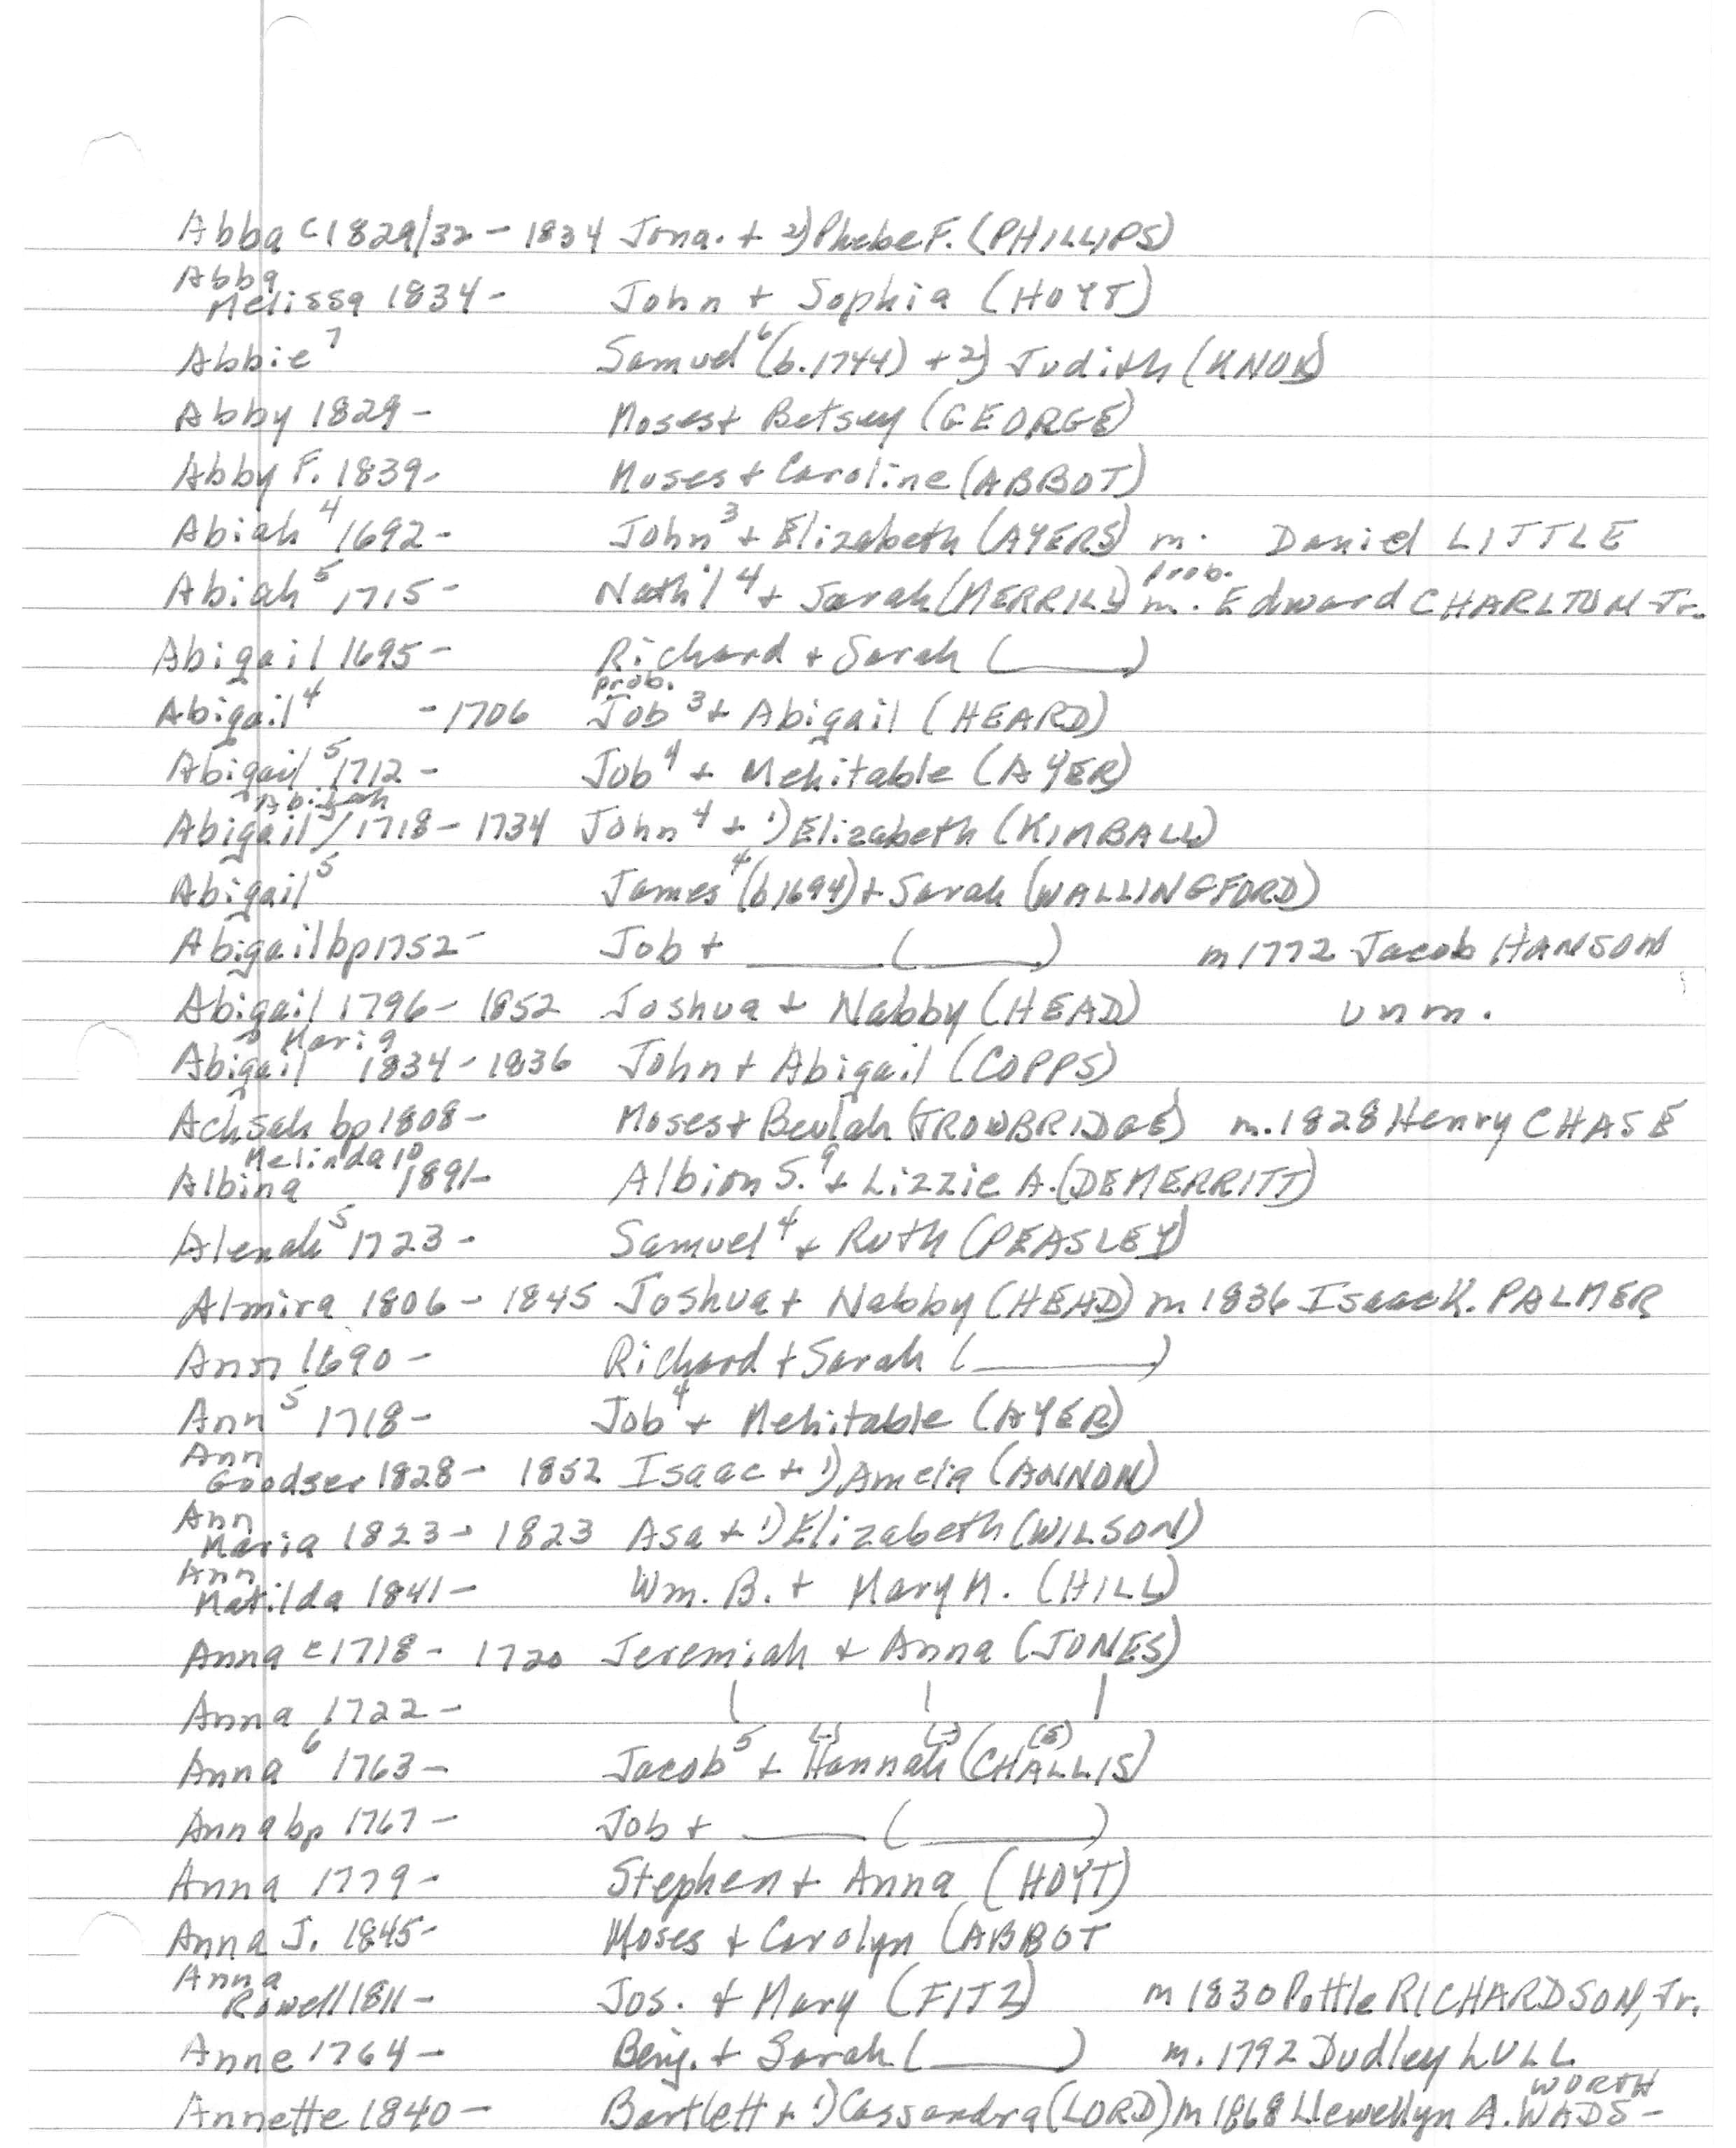 Abba c1829/32 - 1834 Jona. + 2) Phebe F. (PHILLIPS)
Abba Melissa 1834 - John + Sophia (HOYT)
Abbie⁷ Samuel⁶ (b.1744) + 2) Judith (KNOX)
Abby 1829 - Moses + Betsey (GEORGE)
Abby F. 1839 - Moses + Caroline (ABBOT)
Abiah⁴ 1692 - John³ + Elizabeth (AYERS) m. Daniel LITTLE
Abiah⁵ 1715 - Nath'l⁴ + Sarah (MERRILL) prob. m. Edward CHARLTON Jr.
Abigail 1695 - Richard + Sarah (____)
Abigail⁴ - 1706 prob. Job³ + Abigail (HEARD)
Abigail⁵ 1712 - Job⁴ + Mehitable (AYER)
Abigail/Abijah⁵ 1718 - 1734 John⁴ + 1) Elizabeth (KIMBALL)
Abigail⁵ James⁴ (b1694) + Sarah (WALLINGFORD)
Abigail bp 1752 - Job + ____ (____) m 1772 Jacob HANSON
Abigail 1796 - 1852 Joshua + Nabby (HEAD) unm.
Abigail Maria 1834 - 1836 John + Abigail (COPPS)
Achsah bp 1808 - Moses + Beulah (TROWBRIDGE) m. 1828 Henry CHASE
Albina Melinda¹⁰ 1891 - Albion S.⁹ + Lizzie A. (DEMERRITT)
Alenah⁵ 1723 - Samuel⁴ + Ruth (PEASLEY)
Almira 1806 - 1845 Joshua + Nabby (HEAD) m. 1836 Isaac K. PALMER
Ann 1690 - Richard + Sarah (____)
Ann⁵ 1718 - Job⁴ + Mehitable (AYER)
Ann Goodser 1828 - 1852 Isaac + 1) Amelia (ANNON)
Ann Maria 1823 - 1823 Asa + 1) Elizabeth (WILSON)
Ann Matilda 1841 - Wm. B. + Mary M. (HILL)
Anna c1718 - 1720 Jeremiah + Anna (JONES)
Anna 1722 - | | |
Anna⁶ 1763 - Jacob⁵ + (-) Hannah (-) (CHALLIS) (S)
Anna bp 1767 - Job + ____ (____)
Anna 1779 - Stephen + Anna (HOYT)
Anna J. 1845 - Moses + Carolyn (ABBOT
Anna Rowell 1811 - Jos. + Mary (FITZ) m 1830 Pottle RICHARDSON, Jr.
Anne 1764 - Benj. + Sarah (____) m. 1792 Dudley LULL
Annette 1840 - Bartlett + 1) Cassandra (LORD) m 1868 Llewellyn A. WADS-WORTH